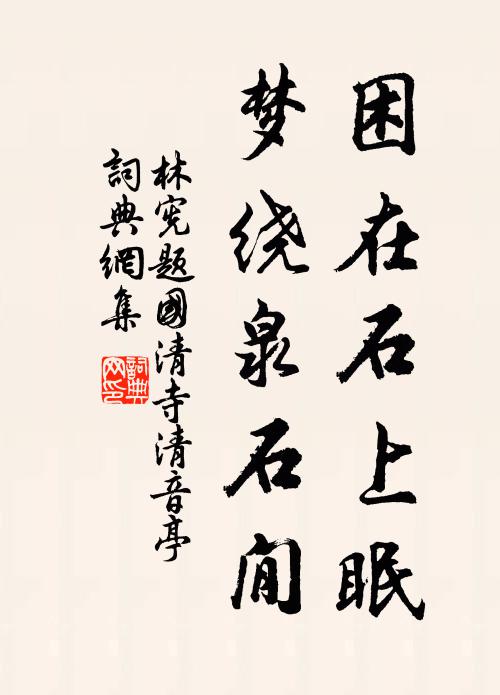 困在石上眠
梦绕泉石间
林宪题國清寺清音亭
詞典網集
詞典
网印